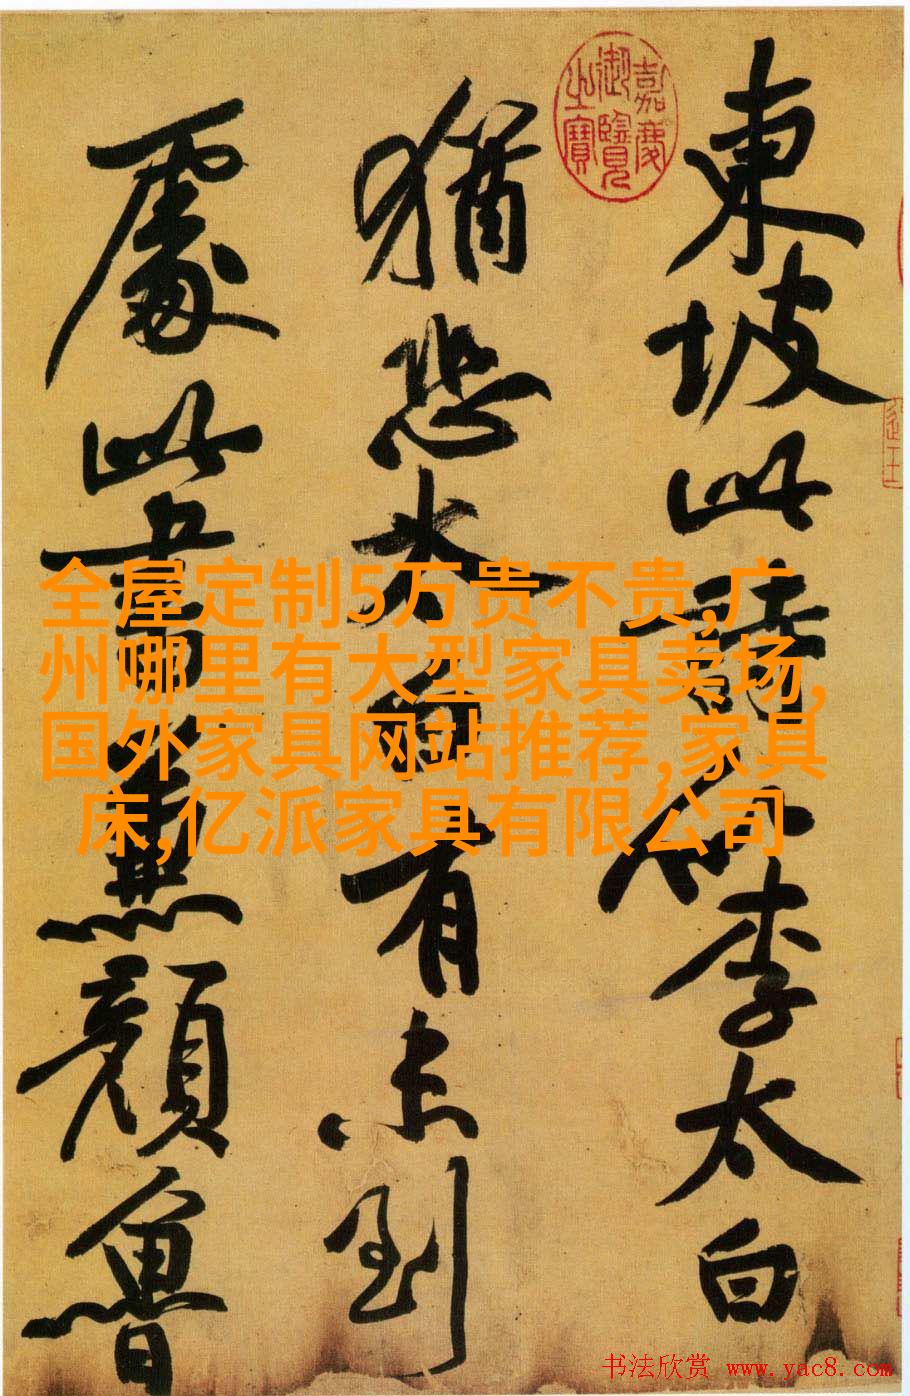 嘉慶
御覽
之寶
東坡此詩似李太白
猶恐太白有未到
處此書兼顏魯
全屋定制5万贵不贵,广
州哪里有大型家具卖场,
国外家具网站推荐,家具
床,亿派家具有限公司
书法欣赏 www.yac8.com